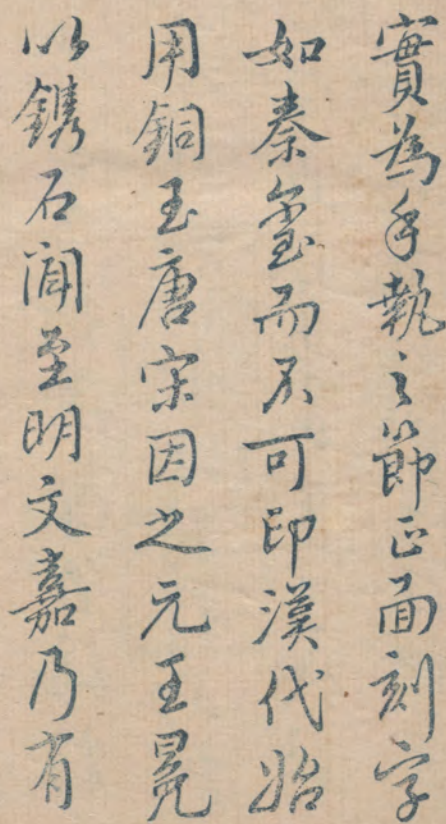 實為手執之節正面刻字
如秦璽而不可印漢代始
用銅玉唐宋因之元王冕
以鐫石聞至明文嘉乃有